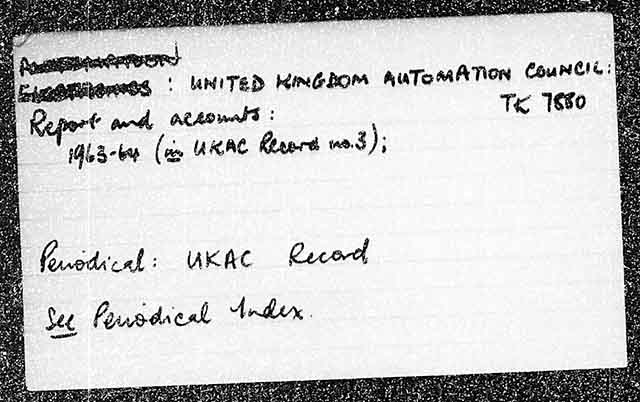 : UNITED KINGDOM AUTOMATION COUNCIL:
TK 7880
Report and accounts:
1963-64 (in UKAC Record no.3);
Periodical: UKAC Record
See Periodical Index.